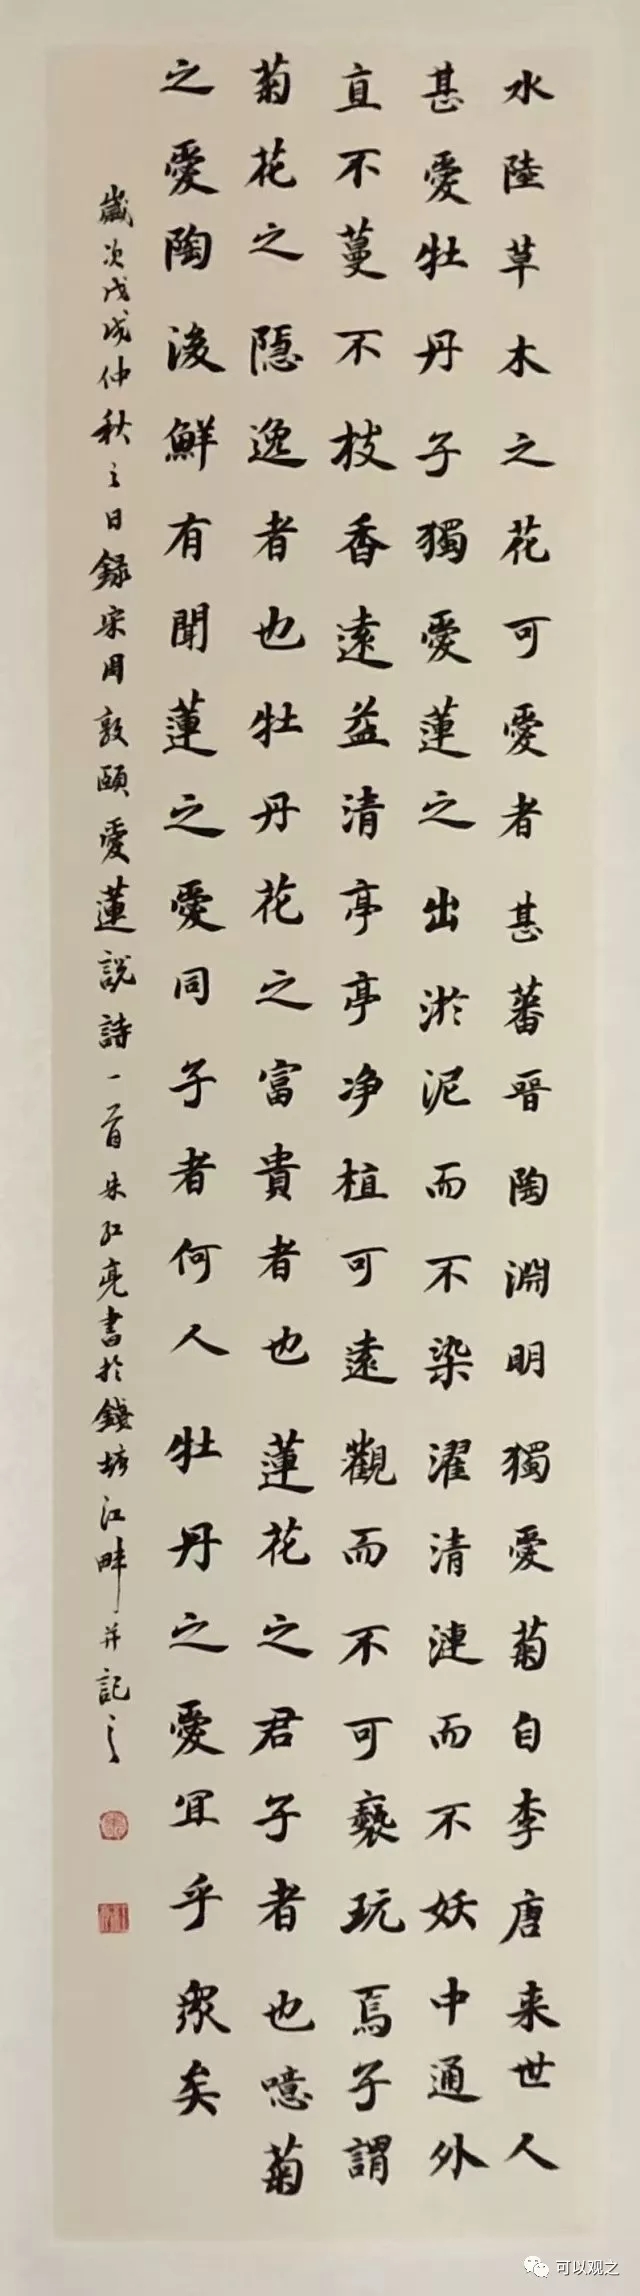 水陸草木之花可愛者甚蕃晉陶淵明獨愛菊自李唐来世人
甚愛牡丹予獨愛蓮之出淤泥而不染濯清漣而不妖中通外
直不蔓不枝香遠益清亭亭净植可遠觀而不可褻玩焉予謂
菊花之隱逸者也牡丹花之富貴者也蓮花之君子者也噫菊
之愛陶後鮮有聞蓮之愛同予者何人牡丹之愛宜乎衆矣
歲次戊戌仲秋之日録宋周敦頤愛蓮説詩一首朱紅亮書於錢塘江畔并記之
可以观之